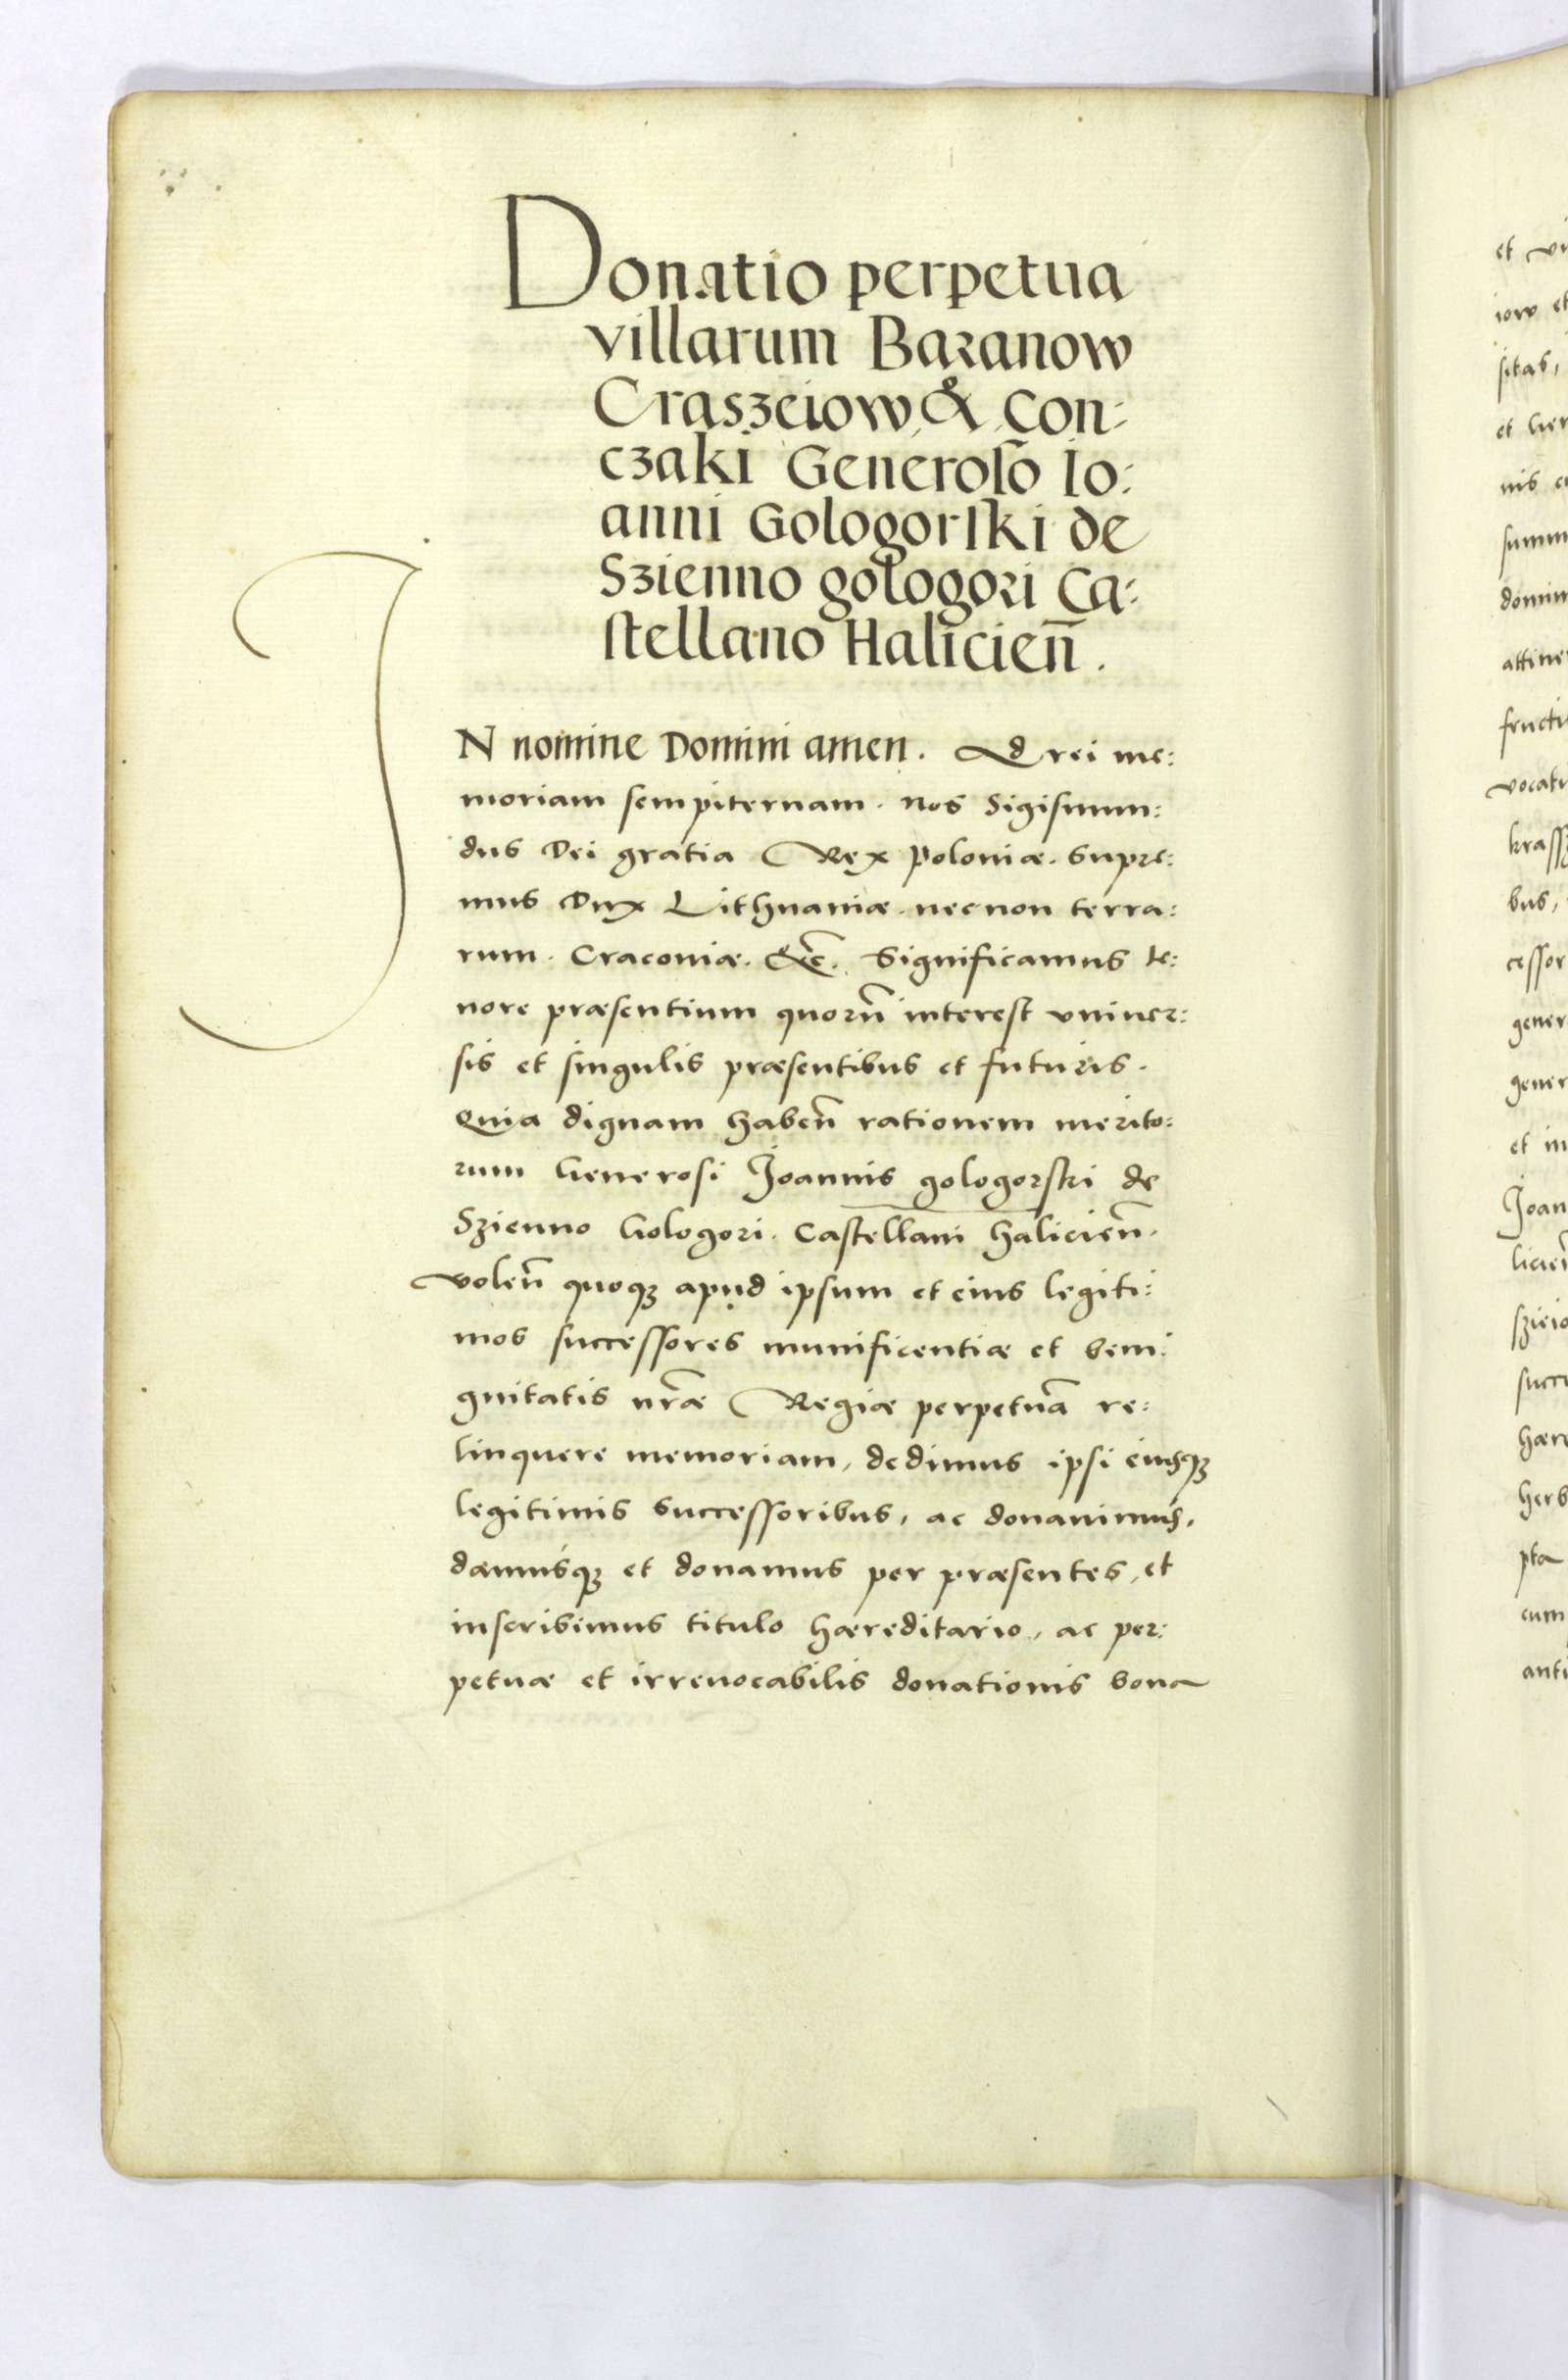 Donatio perpetua
villarum Baranow
Craszeiow & Con:
czaki Generoso Io:
anni Gologorski de
Szienno gologori Ca:
stellano Halicien̄.
IN nomine Domini amen. Ad rei me:
moriam sempiternam. Nos Sigismun:
dus Dei gratia Rex Poloniæ. Supre:
mus Dux Lithuaniæ. necnon terra:
rum. Cracoviæ. &c̄. Significamus te:
nore præsentium quorū interest univer:
sis et singulis præsentibus et futuris.
Quia dignam haben̄ rationem merito:
rum Generosi Joannis gologorski de
Szienno Gologori. Castellani halicien̄.
volen̄ quoq; apud ipsum et eius legiti:
mos successores munificentiæ et beni:
gnitatis nr̄æ Regiæ perpetuā re:
linquere memoriam, dedimus ipsi eiusq;
legitimis successoribus, ac donavimus,
damusq; et donamus per præsentes, et
inscribimus titulo hæreditario, ac per:
petuæ et irrevocabilis donationis bona
et
sitas,
et
nis
summ
domin
attine
fructu
vocat
krassz
bus,
cessor
gener
gener
et in
Joan
licien̄
szieio
succe
hære
herb
pta
cum
anti